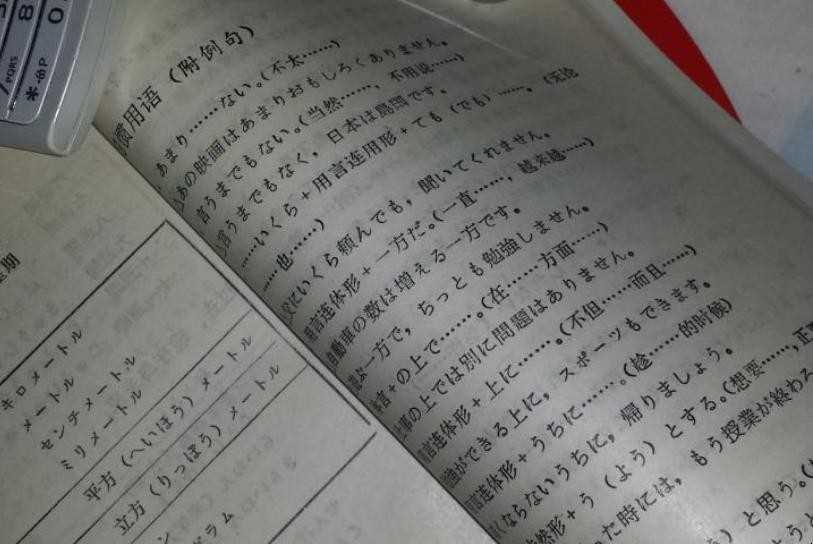 8
0
PQRS
期
キロメートル
メートル
センチメートル
ミリメートル
平方（へいほう）メートル
立方（りっぽう）メートル
ラム
慣用语（附例句）
あまり……ない。(不太……)
あの映画はあまりおもしろくありません。
言うまでもない。(当然……，不用说……)
言うまでもなく，日本は島国です。
……いくら＋用言连用形＋ても（でも）……。(无论
……也……)
父にいくら頼んでも，聞いてくれません。
用言连体形＋一方だ。(一直……，越来越……)
自動車の数は増える一方です。
一方で，ちっとも勉強しません。
体言＋の上で……。(在……方面……)
の上では別に問題はありません。
用言连体形＋上に……。(不但……而且……)
ができる上に，スポーツもできます。
用言连体形＋うちに……。(趁……的时候)
ならないうちに，帰りましょう。
形＋う（よう）とする。(想要……，正要
た時には，もう授業が終わろ
）と思う。